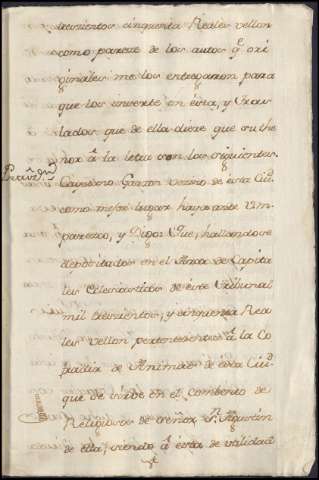 trescientos cinquenta Reales vellon
como parece de los autos q.e ori
ginales me los entregaron para
que los inserte en esta, y tras
lados que de ella diere que su the
nor â la letra son los siguientes
Cayetano Garzon vezino de esta Ciu.d
como mejor lugar haya ante Vm
parezco, y Digo: Que, hallandose
depositados en el Arca de Capita
les Eclesiasticos de este Tribunal
mil trescientos, y cinquenta Rea
les vellon pertenecientes â la Co
fradia de Animas de esta Ciu.d
que se sirve en el combento de
Religiosos de señor S.n Agustin
de ella; siendo â esta de utilidad